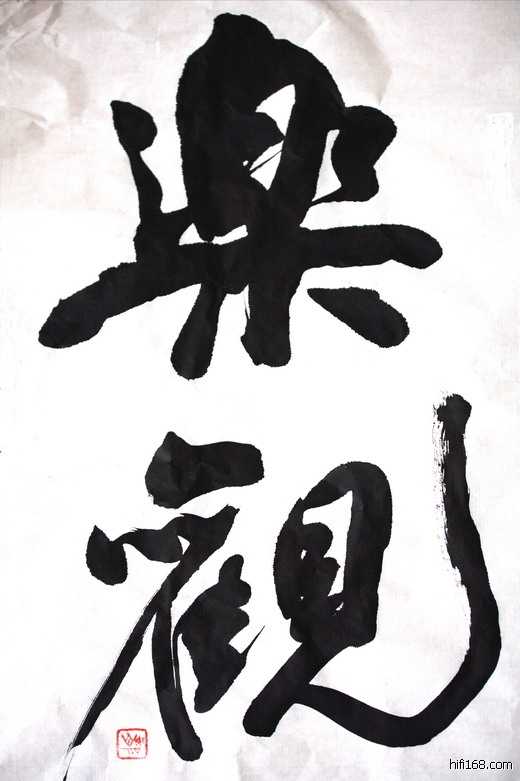 樂
觀
hifi168.com